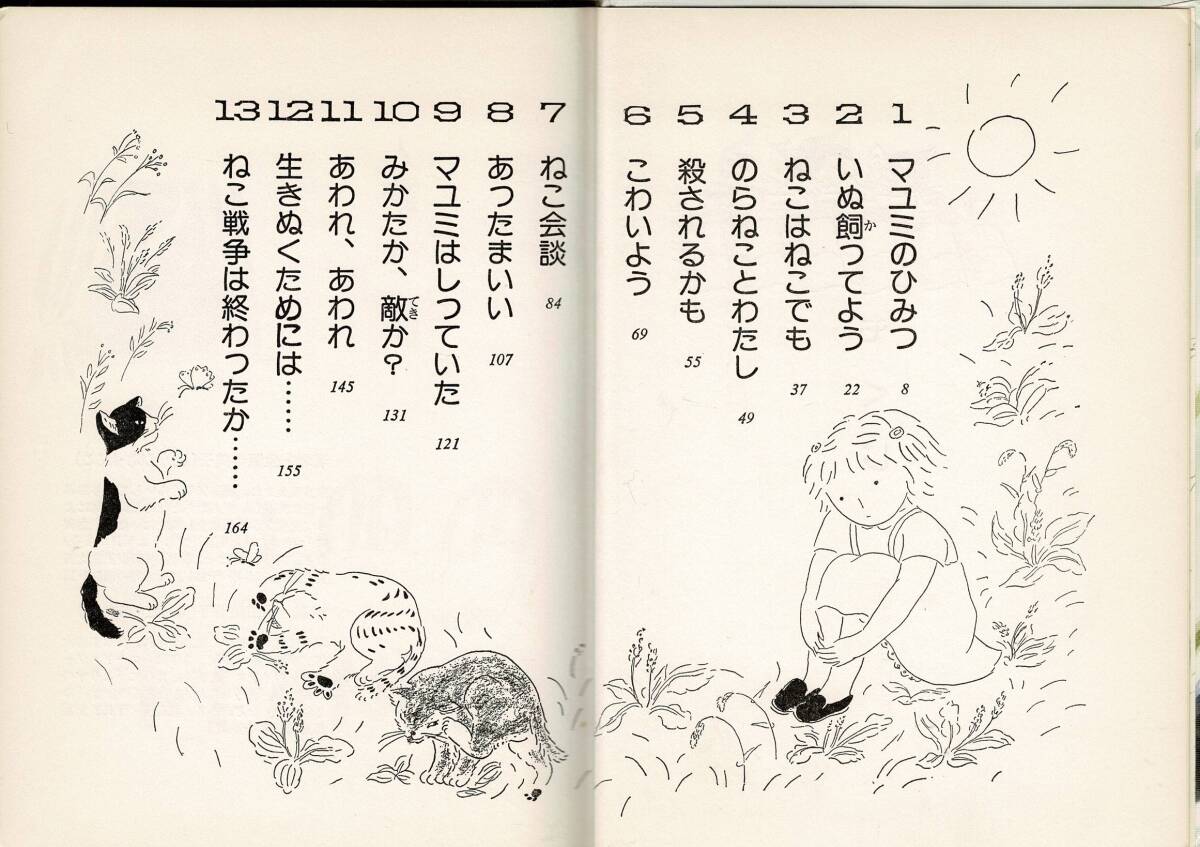 1 マユミのひみつ 8
2 いぬ飼(か)つてよう 22
3 ねこはねこでも 37
4 のらねことわたし 49
5 殺されるかも 55
6 こわいよう 69
7 ねこ会談 84
8 あつたまいい 107
9 マユミはしつていた 121
10 みかたか、敵(てき)か? 131
11 あわれ、あわれ 145
12 生きぬくためには…… 155
13 ねこ戦争は終わつたか…… 164